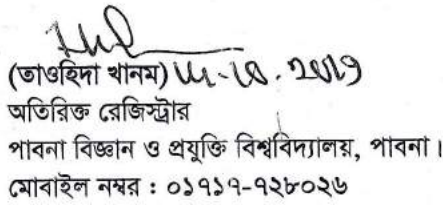 (তাওহিদা খানম)
অতিরিক্ত রেজিস্ট্রার
পাবনা বিজ্ঞান ও প্রযুক্তি বিশ্ববিদ্যালয়, পাবনা।
মোবাইল নম্বর : ০১৭১৭-৭২৮০২৬